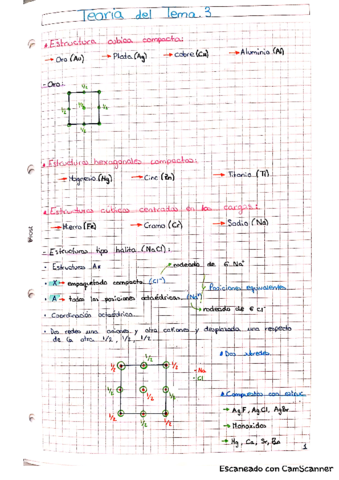 Teoría del Tema 3
• Estructura cúbica compacta:
→ Oro (Au) → Plata (Ag) → cobre (Cu) → Aluminio (Al)
- Oro:
1/2
1/2 1/2
1/2
• Estructura hexagonales compactas:
→ Magnesio (Mg) → Cinc (Zn) → Titanio (Ti)
• Estructura cúbicas centradas en las cargas:
→ Hierro (Fe) → Cromo (Cr) → Sodio (Na)
- Estructura tipo halita (NaCl):
• Estructura Ax
→ rodeado de 6 Na⁺
• X → empaquetado compacto (Cl⁻)
→ Posiciones equivalentes
• A → todas las posiciones octaédricas (Na⁺)
→ rodeado de 6 Cl⁻
• Coordinación octaédrica
• Dos redes una aniones y otra cationes y desplazada una respecto
de la otra 1/2, 1/2, 1/2
1/2
1/2 1/2
• Dos subredes
- Na
- Cl
1/2 1/2
1/2
1/2 1/2
1/2
• Compuestos con estruc
→ AgF, AgCl, AgBr
→ Monóxidos
→ Mg, Ca, Sr, Ba
1
Escaneado con CamScanner